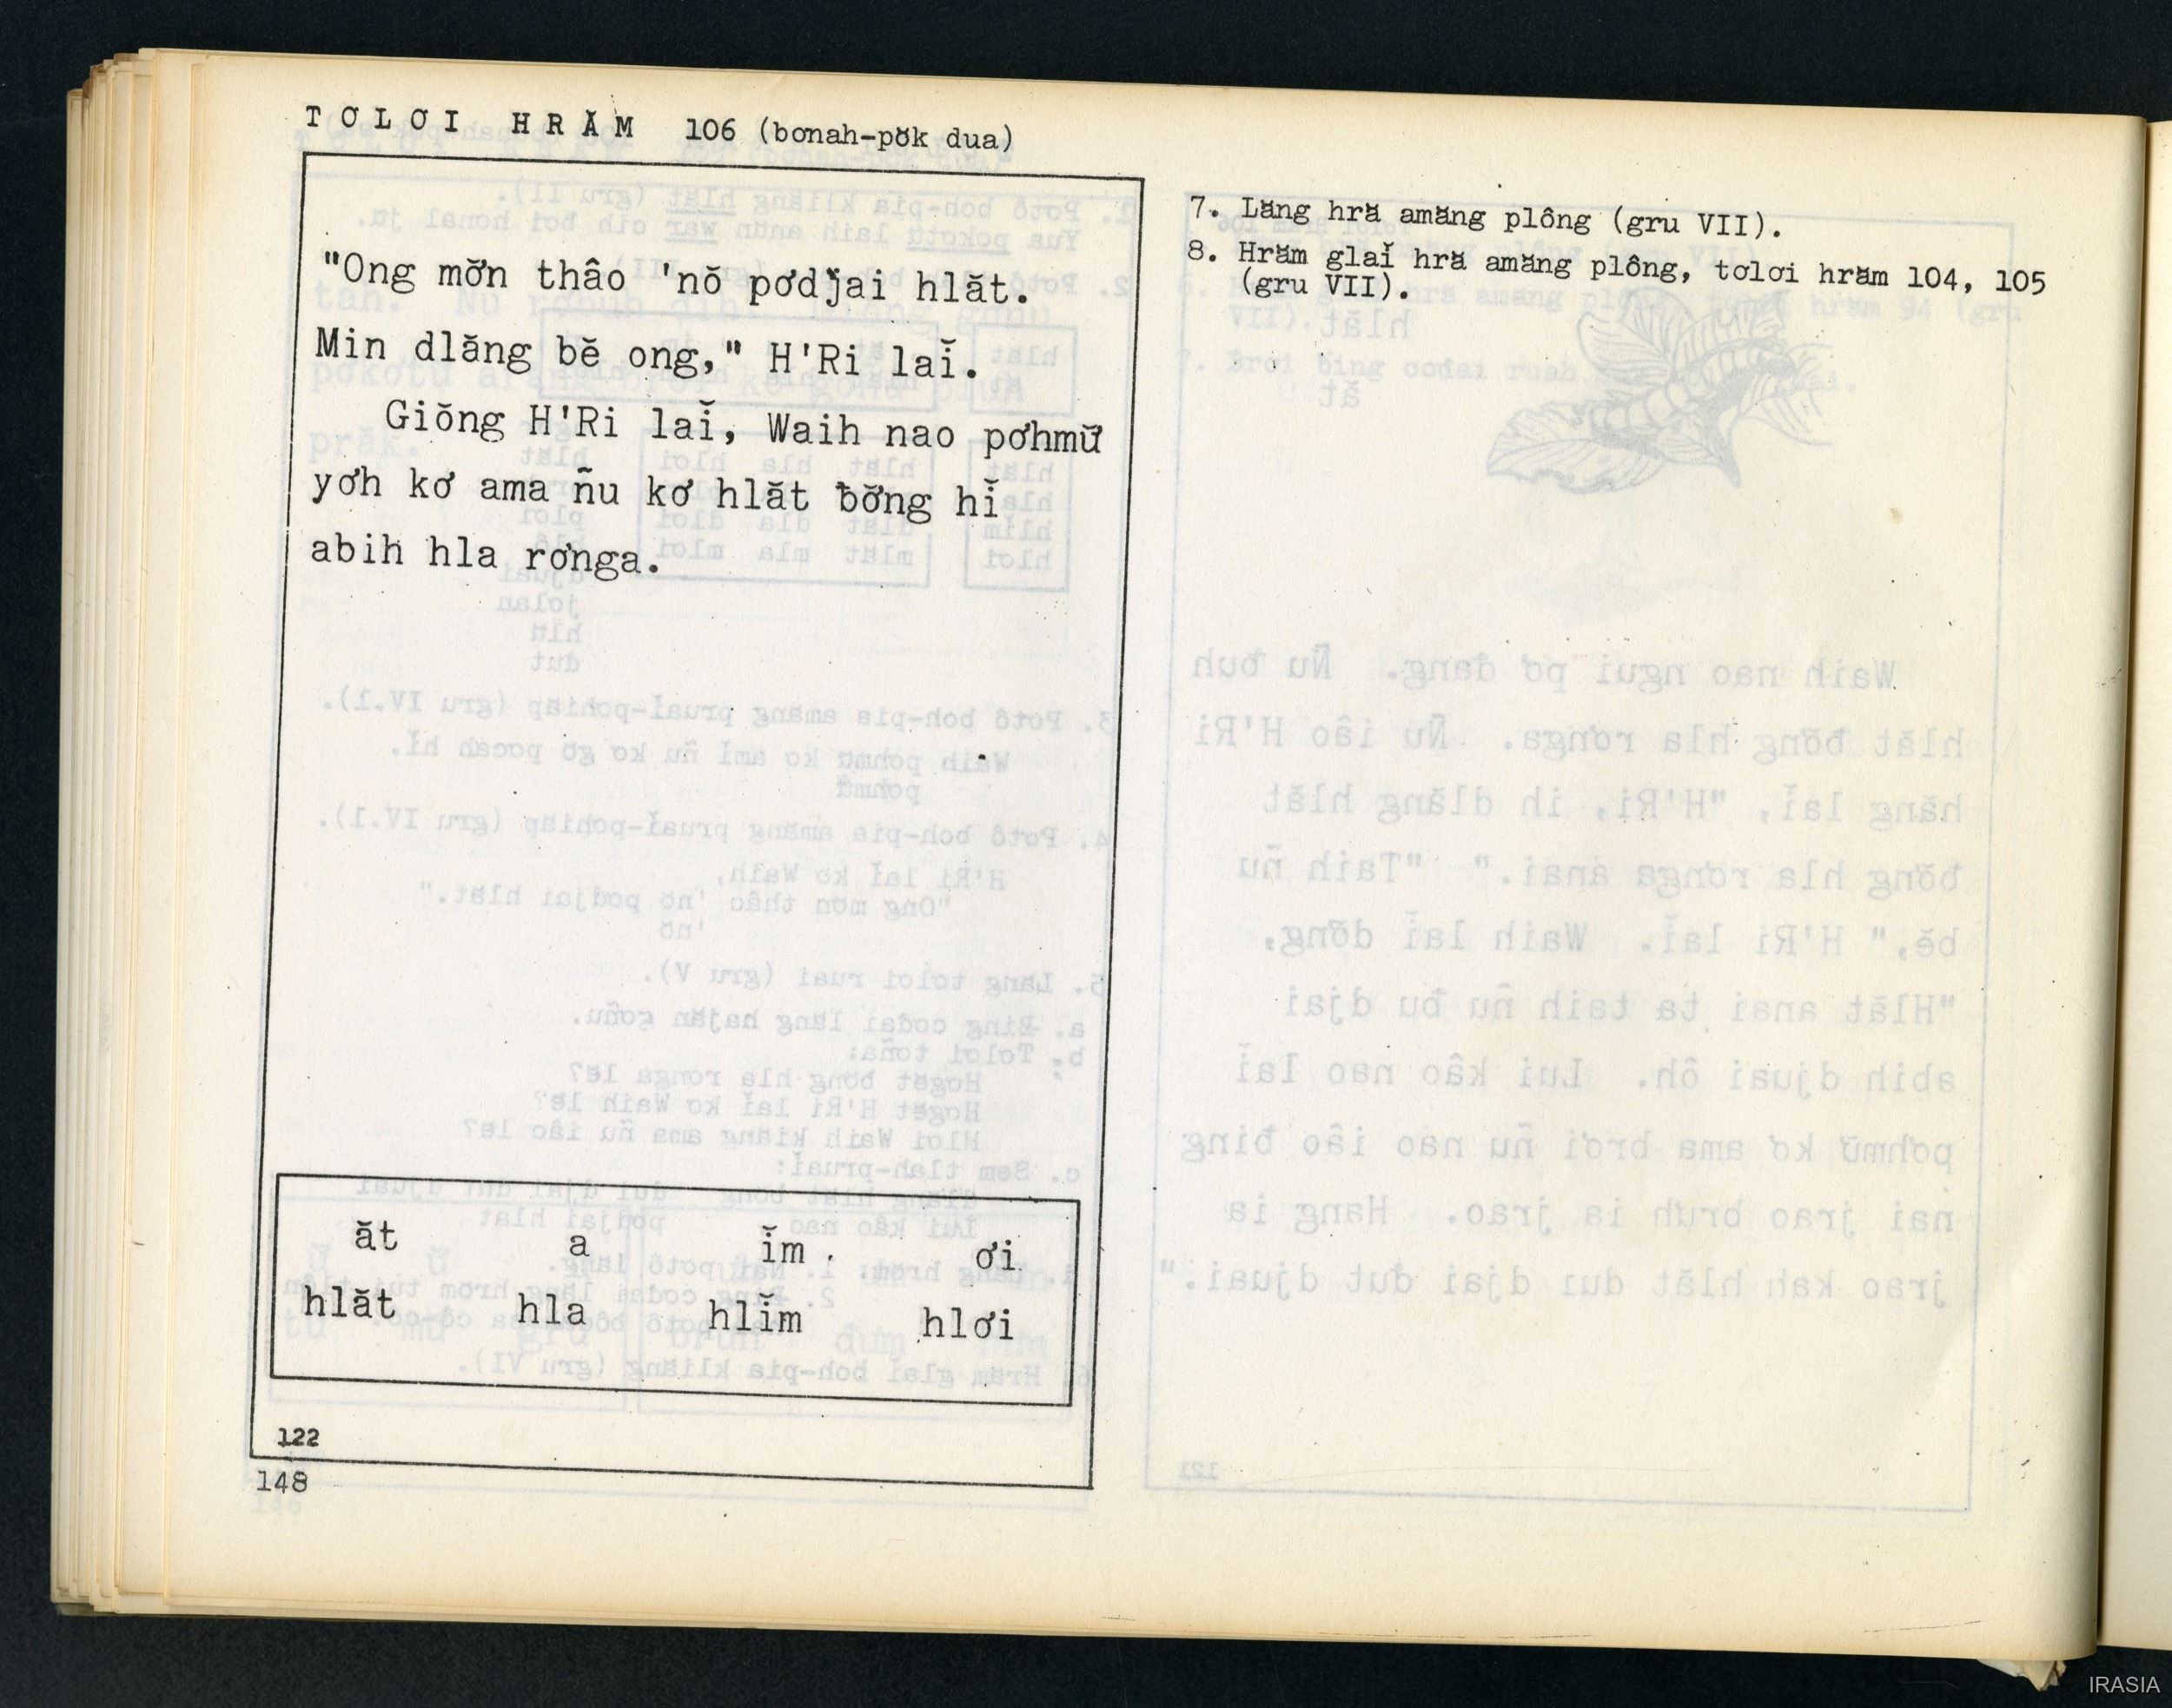 TƠLƠI HRĂM 106 (bơnah-pŏk dua)
"Ong mơ̆n thâo 'nŏ pơdjai hlăt.
Min dlăng bĕ ong," H'Ri laĭ.
Giŏng H'Ri laĭ, Waih nao pơhmư̆
yơh kơ ama ñu kơ hlăt ƀơ̆ng hĭ
abih hla rơnga.
ăt a ĭm ơi
hlăt hla hlĭm hlơi
122
148
7. Lăng hră amăng plông (gru VII).
8. Hrăm glaĭ hră amăng plông, tơlơi hrăm 104, 105
(gru VII).
IRASIA